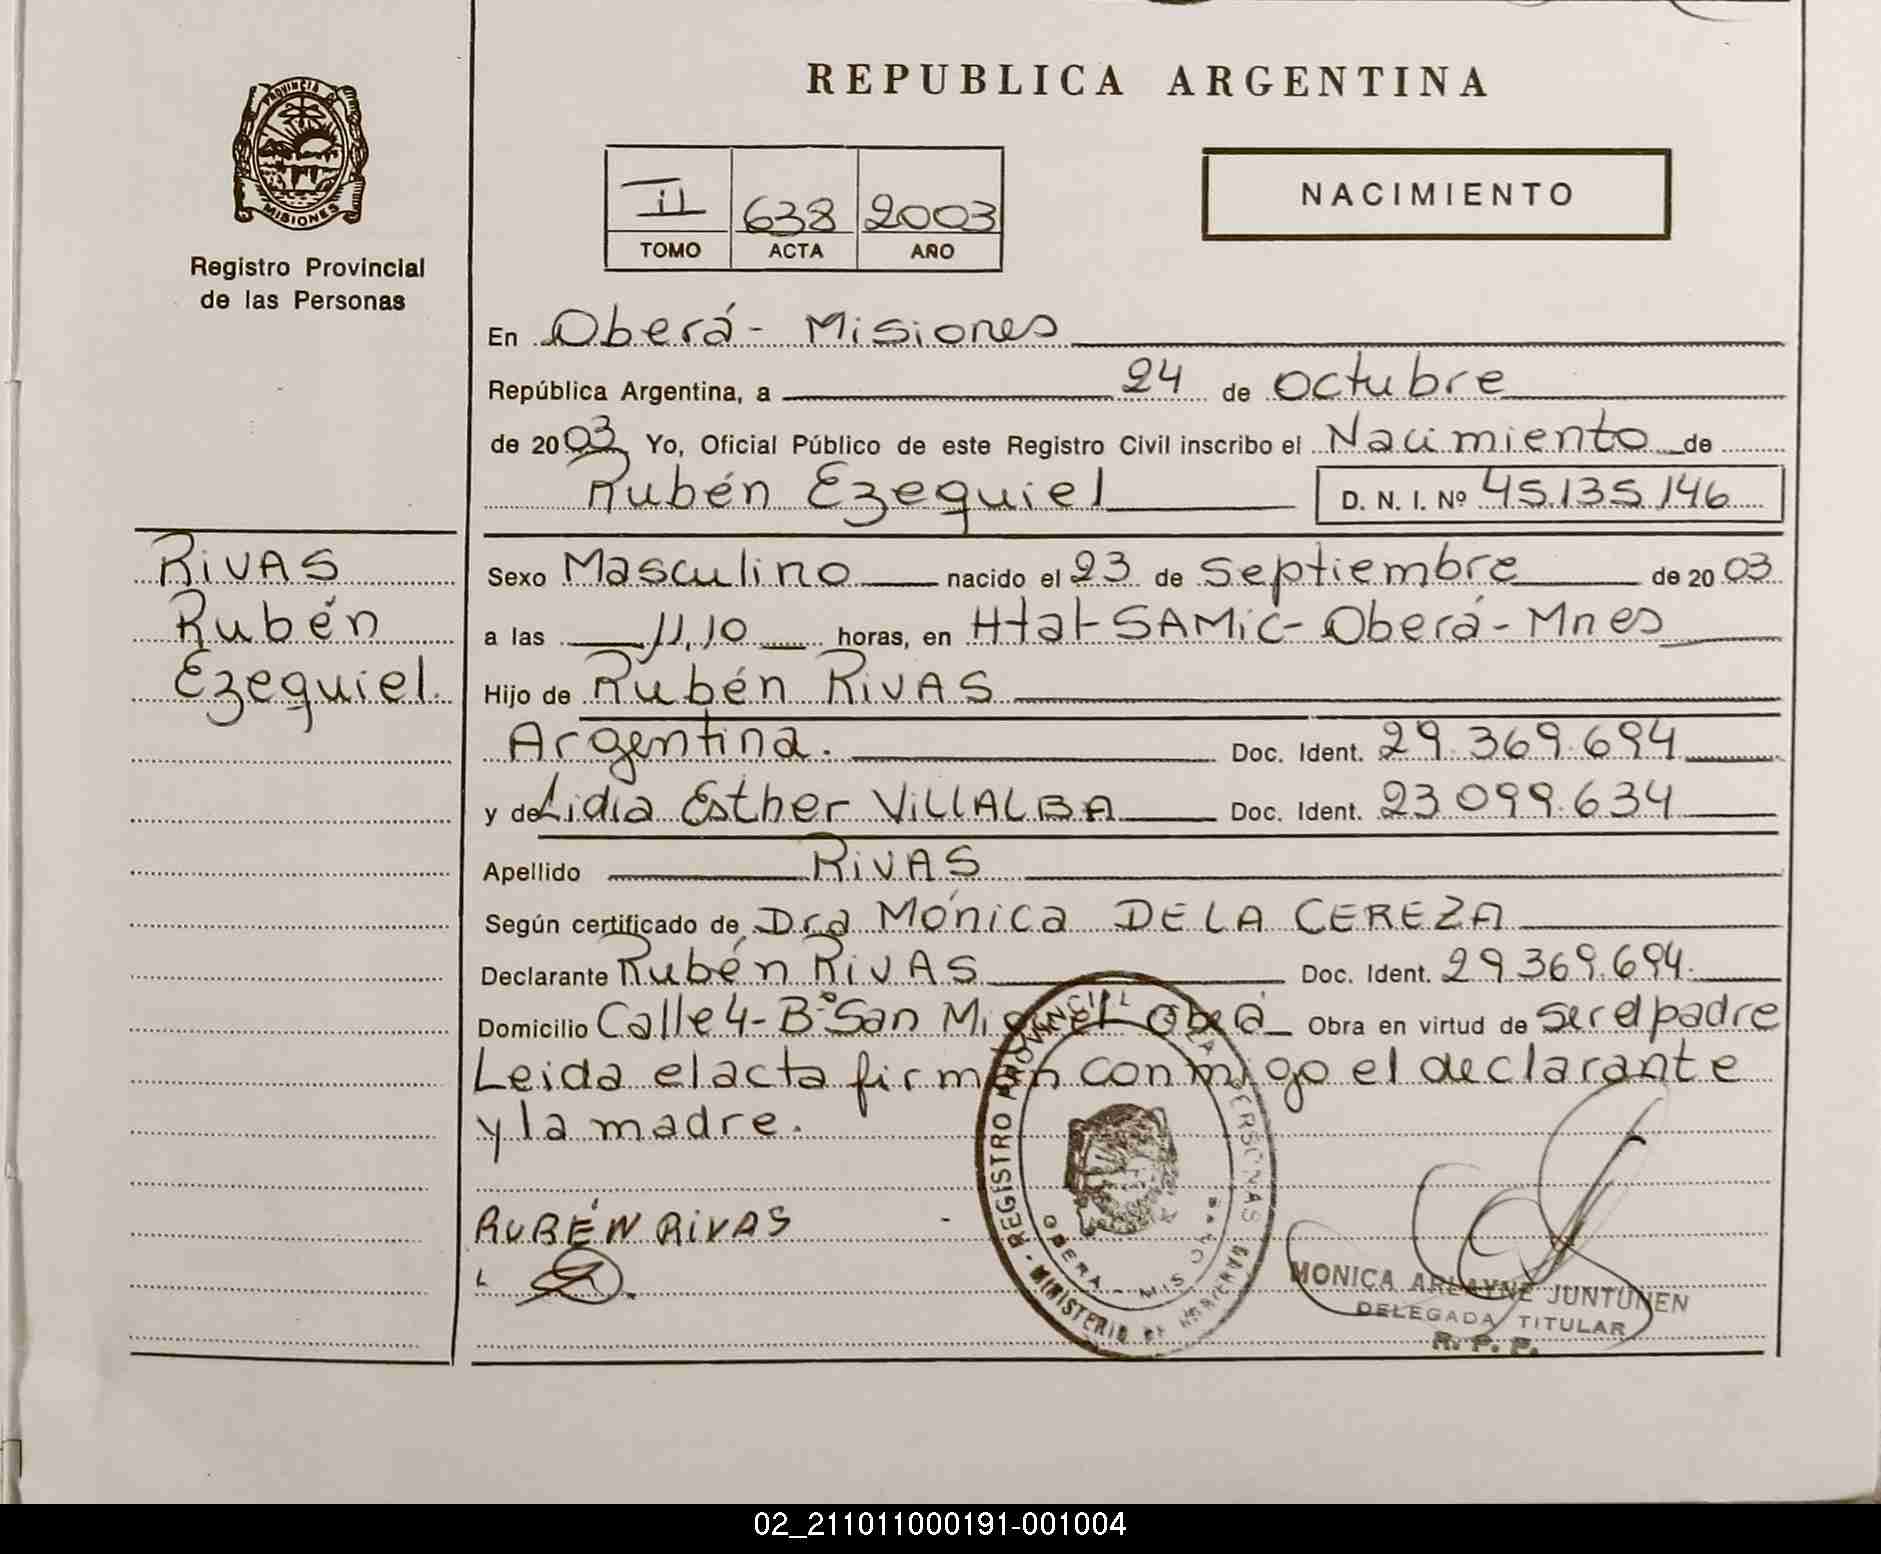 PROVINCIA D
MISIONES
Registro Provincial
de las Personas
RIVAS
Rubén
Ezequiel.
REPUBLICA ARGENTINA
II 638 2003
TOMO ACTA AÑO
NACIMIENTO
En Oberá - Misiones
República Argentina, a 24 de octubre
de 2003 Yo, Oficial Público de este Registro Civil inscribo el Nacimiento de
Rubén Ezequiel D. N. I. Nº 45.135.146
Sexo Masculino nacido el 23 de septiembre de 2003
a las 11,10 horas, en Htal SAMIC - Oberá - Mnes
Hijo de Rubén RIVAS
Argentina. Doc. Ident. 29.369.694
y de Lidia Esther VILLALBA Doc. Ident. 23.099.634
Apellido RIVAS
Según certificado de Dra Mónica DE LA CEREZA
Declarante Rubén RIVAS Doc. Ident. 29.369.694.
Domicilio Calle 4 - Bº San Miguel Oberá Obra en virtud de ser el padre
Leida el acta firman conmigo el declarante
y la madre.
RUBÉN RIVAS
REGISTRO PROVINCIAL LAS PERSONAS
MINISTERIO DE
OBERA - MIS
MONICA ARLAYNE JUNTUNEN
DELEGADA TITULAR
R. P. P.
02_211011000191-001004